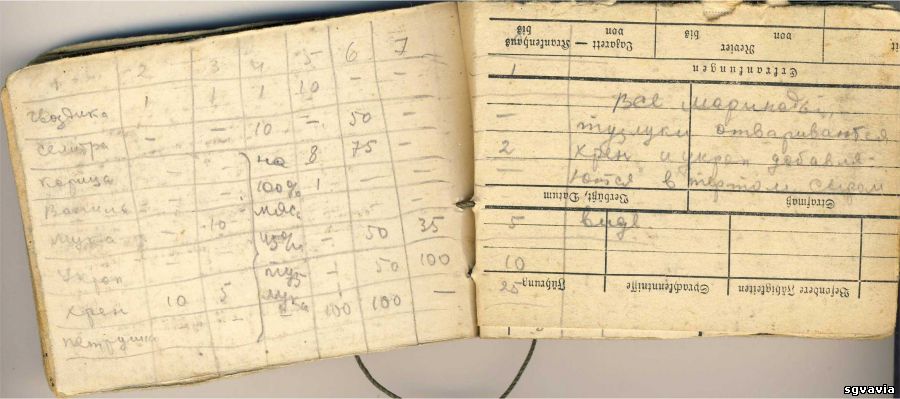 2 3 4 5 6 7
гвоздика 1 1 1 10 – –
селитра – – 10 – 50 –
корица на 8 75 –
ваниль – 1 –
мука – 10 мяса
укроп – 50 35
хрен 10 5 туз – 50 100
петрушка лука 100 100 –
1
–
2
–
5
10
25
Все маринады,
тузлуки отвариваются
хрен и укроп добавля-
ются в тертом сыром
виде
Besondere Fähigkeiten Sprachkenntnisse Führung
Strafmaß Verbüßt, Datum
Erkrankungen
Revier Lazarett — Krankenhaus
von bis von bis
sgvavia